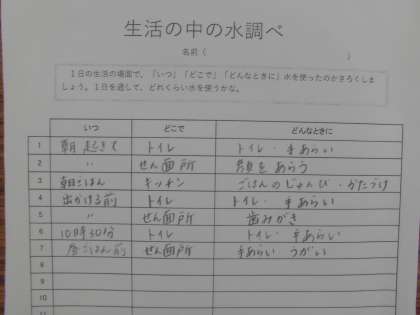 生活の中の水調べ
名前（　　　　　　　　）
１日の生活の場面で、「いつ」「どこで」「どんなときに」水を使ったのかきろくしま
しょう。１日を通して、どれくらい水を使うかな。
いつ どこで どんなときに
1 朝 起きて トイレ トイレ・手あらい
2 〃 せん面所 顔をあらう
3 朝ごはん キッチン ごはんのじゅんび・かたづけ
4 出かける前 トイレ トイレ・手あらい
5 〃 せん面所 歯みがき
6 10時30分 トイレ トイレ・手あらい
7 昼ごはん前 せん面所 手あらい うがい
8
9
10
11
12